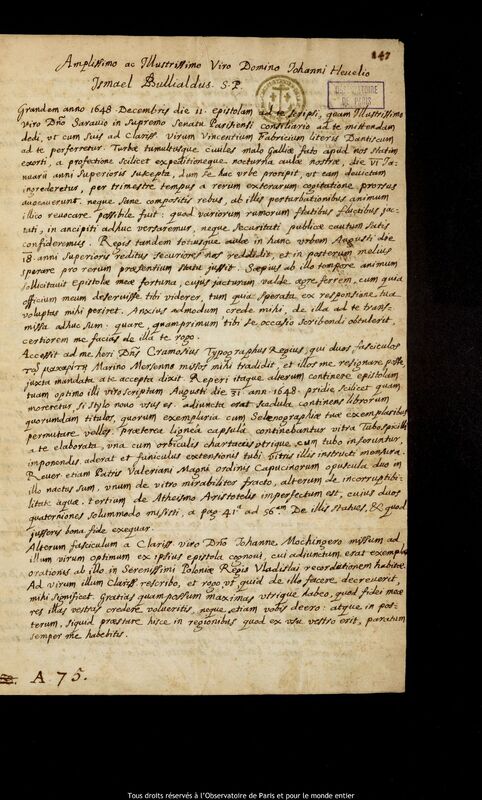 147
Amplissimo ac Illustrissimo Viro Domino Johanni Hevelio
Ismael Bullialdus. S. P.
OBSERVATOIRE
DE PARIS
Grandem anno 1648 Decembris die 11. epistolam ad te scripsi, quam Illustrissimo
Viro Dño Saravio in supremo Senatu Parisiensi consiliario ad te mittendam
dedi, ut cum suis ad Clariss. Virum Vincentium Fabricium literis Dantiscum
ad te perferretur. Turbæ tumultusque civiles malo Galliæ fato apud nos statim
exorti, a profectione scilicet expeditioneque nocturna aulæ nostræ, die VI Ja-
nuarii anni Superioris suscepta, dum se hac urbe proripit, ut eam devictam
ingrederetur, per trimestre tempus a rerum exterarum cogitatione prorsus
avocaverunt. neque sane compositis rebus, ab illis perturbationibus animum
illico revocare possibile fuit: quod variorum rumorum flatibus fluctibus jac-
tati, in ancipiti adhuc versaremur, neque securitati publicæ cautum satis
confideremus. Regis tandem totiusque aulæ in hanc urbem Augusti die
18. anni superioris reditus securiores nos reddidit, et in posterum melius
sperare pro rerum præsentium statu jussit. Sæpius ab illo tempore animum
sollicitavit epistolæ meæ fortuna, cujus jacturam valde ægre ferrem, cum quia
officium meum deseruisse tibi viderer, tum quia sperata ex responsione tua
voluptas mihi periret. Anxius admodum crede mihi, de illa ad te trans-
missa adhuc sum. quare, quamprimum tibi se occasio scribendi obtulerit,
certiorem me facias de illa te rogo.
Accessit ad me heri Dñs Cramosius Typographus Regius, qui duos fasciculos
τῷ μακαρίτῃ Marino Mersenno missos mihi tradidit, et illos me resignare posse
juxta mandata a te accepta dixit. Reperi itaque alterum continere epistolam
tuam optimo illi viro scriptam Augusti die 31 ann. 1648. pridie scilicet quam
moreretur si stylo novo usus es. adjuncta erat scedula continens librorum
quorumdam titulos, quorum exemplaria cum Selenographiæ tuæ exemplaribus
permutare velles. præterea lignea capsula continebantur vitra Tubospicilli
a te elaborata, una cum orbiculis chartaceis utrique, cum tubo inseruntur,
imponendis. aderat et funiculus extensionis tubi vitris illis instructi mensura.
Reperi etiam Patris Valeriani Magni ordinis Capucinorum opuscula duo in
illo nactus sum, unum de vitro mirabiliter fracto, alterum de incorruptibi-
litate aquæ. tertium de Atheismo Aristotelis imperfectum est, cuius duos
quaterniones solummodo misisti, a pag. 41ᵃ ad 56ᵃᵐ De illis statues, & quod
jusseris bona fide exequar.
Alterum fasciculum a Clariss. viro Dño Johanne Mochingero missum ad
illum virum optimum ex ipsius epistola cognovi, cui adjunctum erat exemplar
orationis ab illo in Serenissimi Poloniæ Regis Vladislai recordationem habitæ.
Ad virum illum Clariss. rescribo, et rogo ut quid de illo facere decreverit,
mihi significet. Gratias quam possum maximas utrique habeo, quod fidei meæ
res illas vestras credere volueritis, neque etiam vobis deero. atque in pos-
terum, siquid præstare hisce in regionibus quod ex usu vestro erit, paratum
semper me habebitis.
A. 75.
Tous droits réservés à l'Observatoire de Paris et pour le monde entier